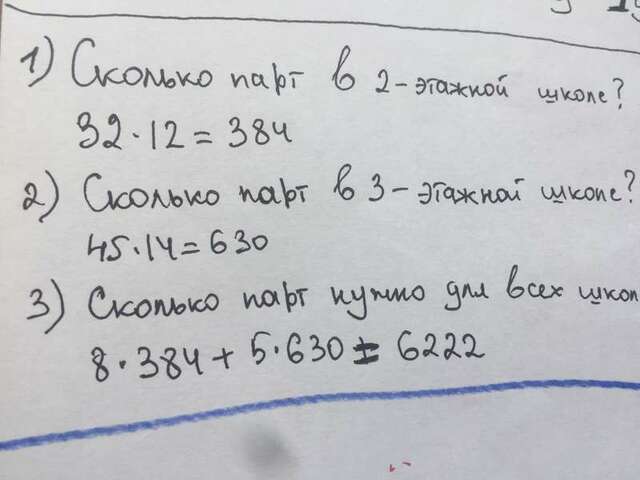 1) Сколько парт в 2-этажной школе?
32·12=384
2) Сколько парт в 3-этажной школе?
45·14=630
3) Сколько парт нужно для всех школ
8·384+5·630=6222